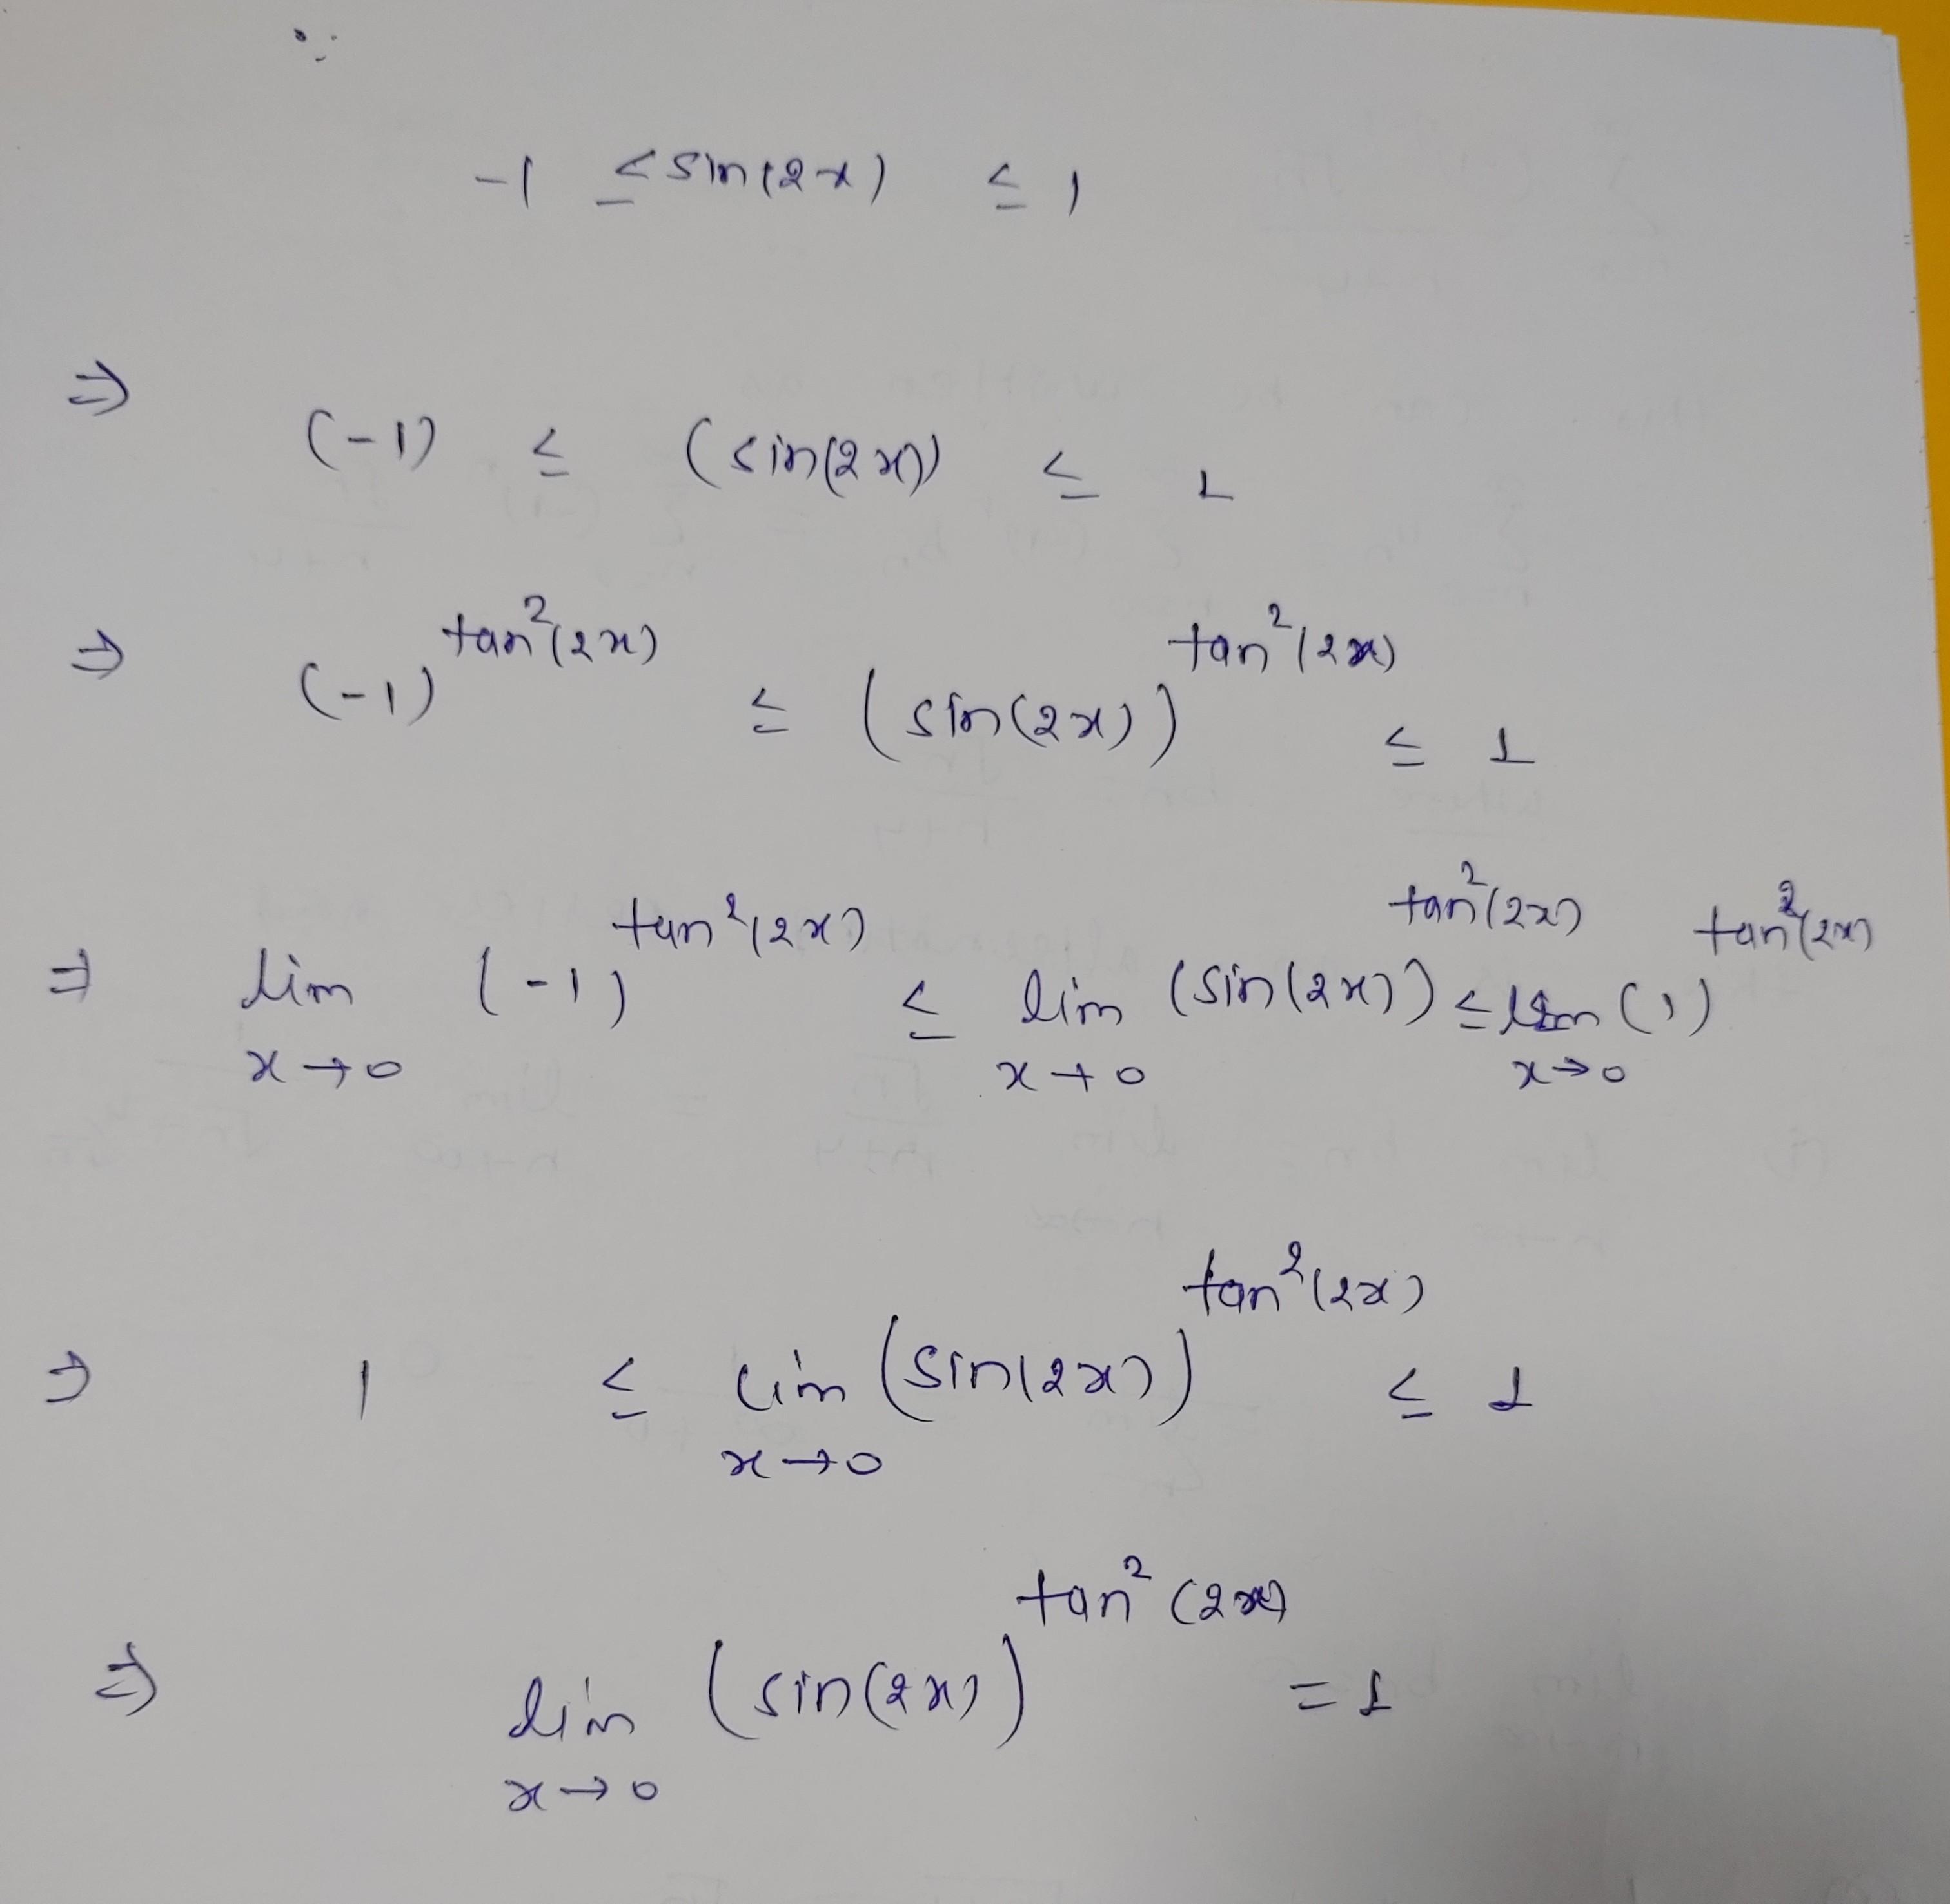 ∵
-1 ≤ sin(2x) ≤ 1
⇒ (-1) ≤ (sin(2x)) ≤ 1
⇒ (-1)^tan²(2x) ≤ (sin(2x))^tan²(2x) ≤ 1
⇒ lim x→0 (-1)^tan²(2x) ≤ lim x→0 (sin(2x))^tan²(2x) ≤ lim x→0 (1)^tan²(2x)
⇒ 1 ≤ lim x→0 (sin(2x))^tan²(2x) ≤ 1
⇒ lim x→0 (sin(2x))^tan²(2x) = 1